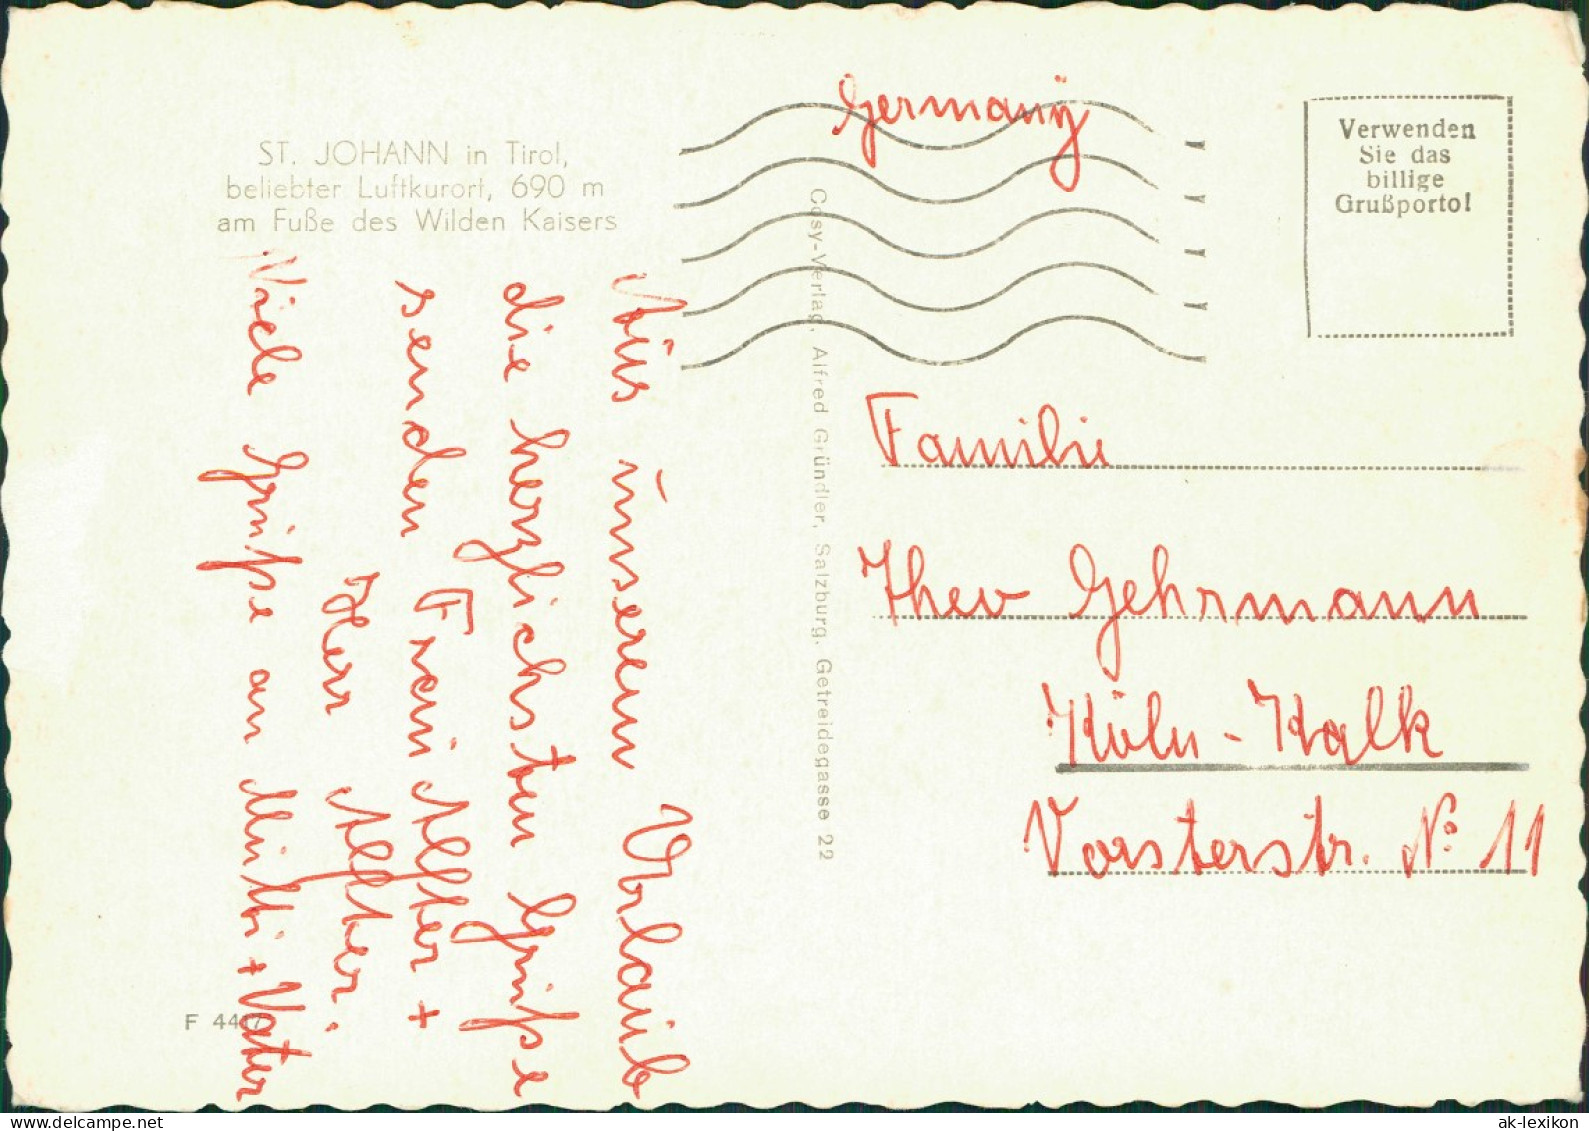 ST. JOHANN in Tirol,
beliebter Luftkurort, 690 m
am Fuße des Wilden Kaisers
Aus unserem Urlaub
die herzlichsten Grüße
senden Frau Alfter +
Herr Alfter.
Viele Grüße an Mutti + Vater
F 4417
Cosy-Verlag, Alfred Gründler, Salzburg, Getreidegasse 22
Germany
Verwenden
Sie das
billige
Grußporto!
Familie
Theo Gehrmann
Köln - Kalk
Vorsterstr. No 11
www.delcampe.net
ak-lexikon